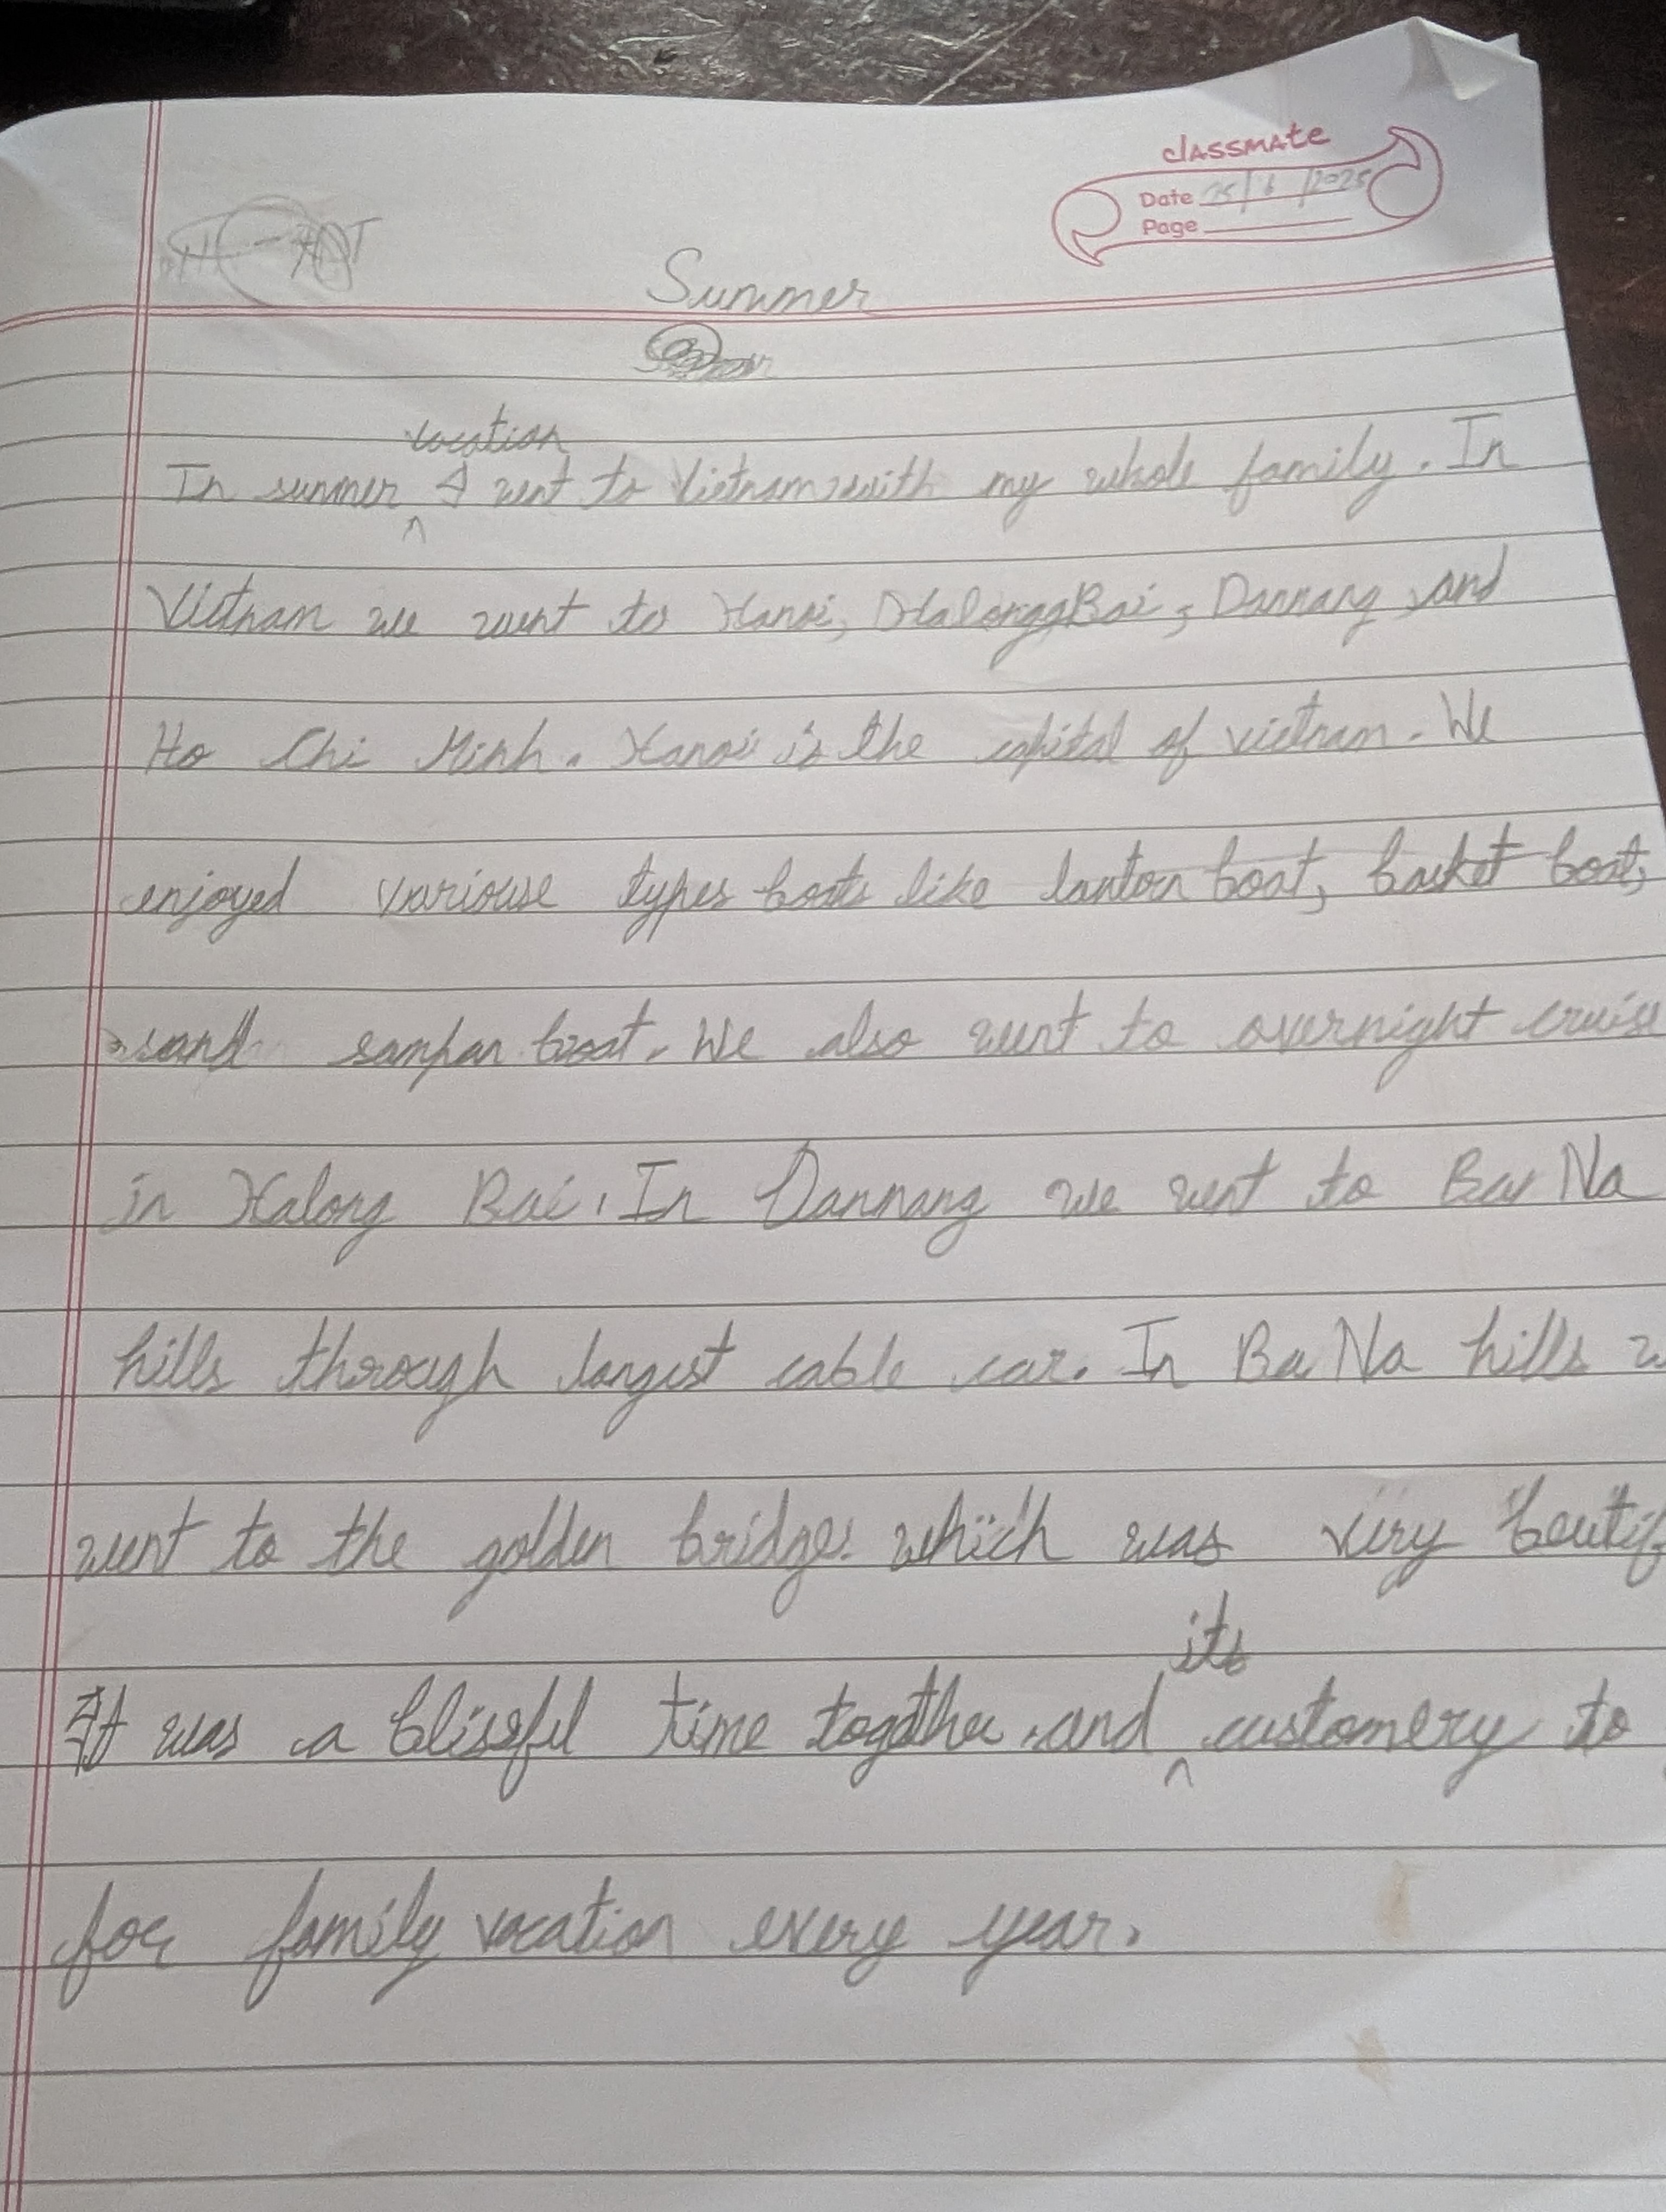 classmate
Date 25/6/2025
Page
Summer
vacation
In summer ^ I went to Vietnam with my whole family. In
Vietnam we went to Hanoi, Halong Bai, Dannang, and
Ho Chi Minh. Hanoi is the capital of vietnam. We
enjoyed variouse types boats like lantern boat, basket boat,
and sampan boat. We also went to overnight cruise
in Halong Bai. In Dannang we went to Ba Na
hills through largest cable car. In Ba Na hills
went to the golden bridge which was very
its
It was a blissful time together and ^ customery to
for family vacation every year.